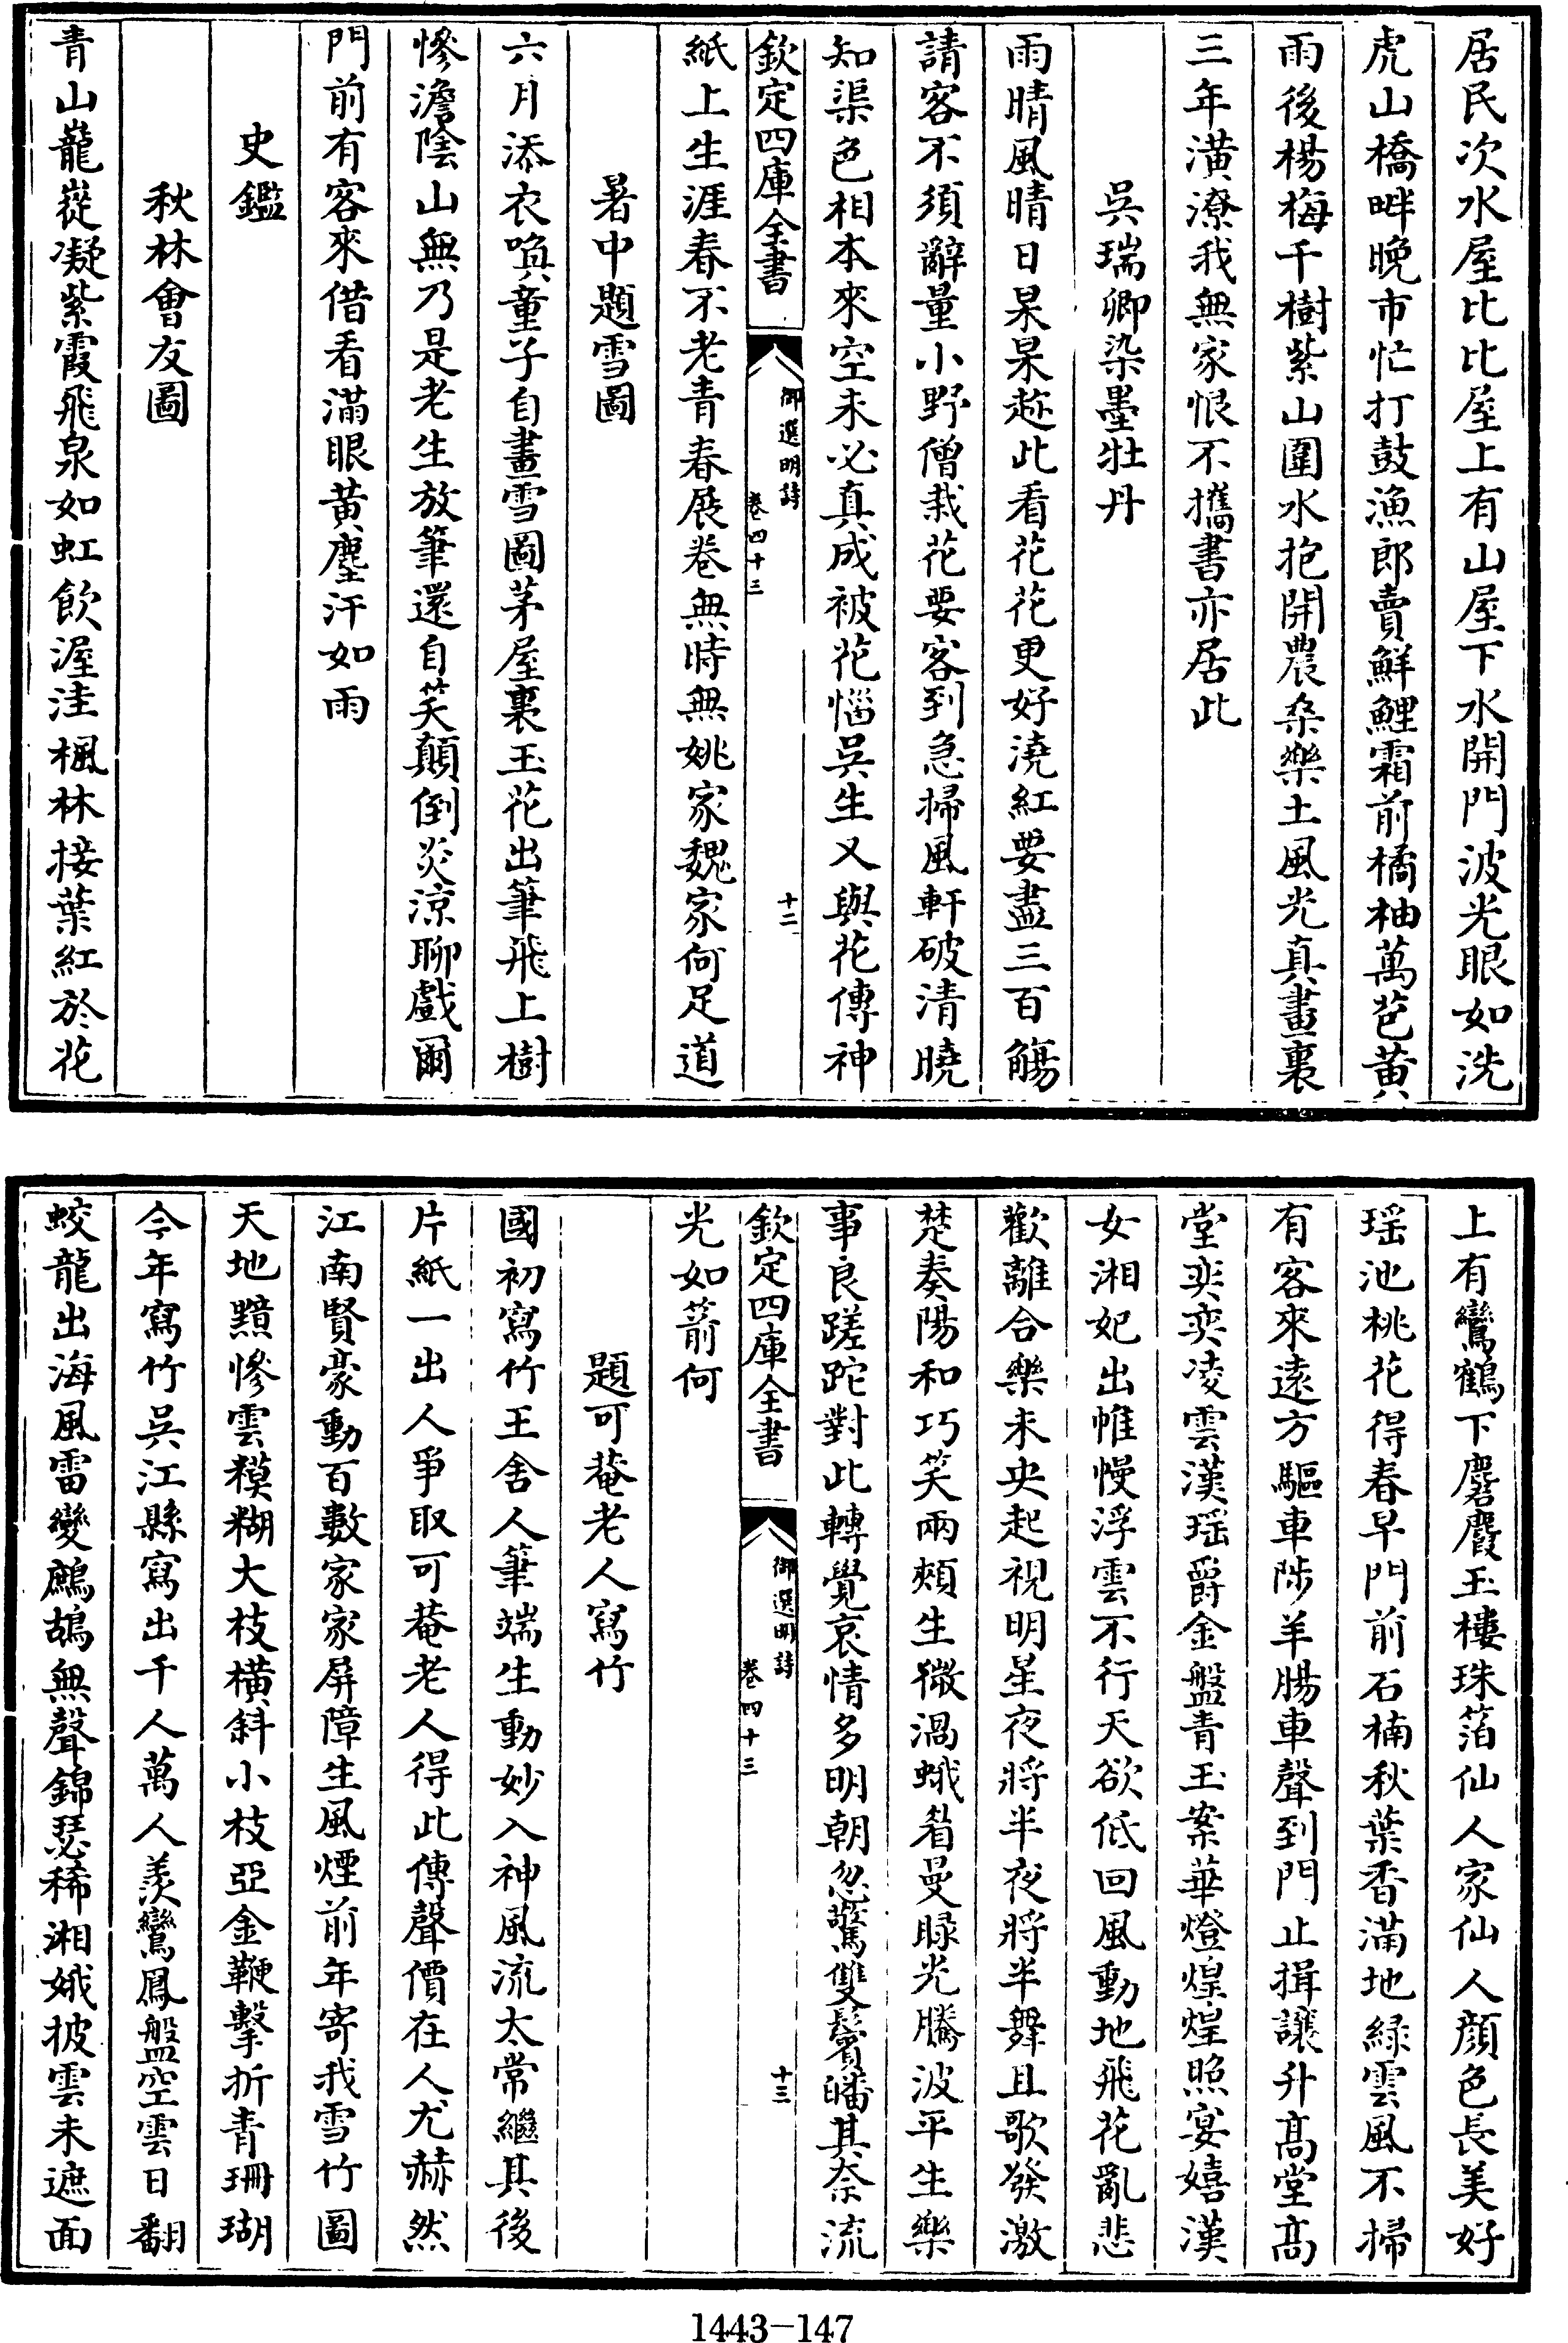 居民次水屋比比屋上有山屋下水開門波光眼如洗
虎山橋畔晚市忙打鼓漁郎賣鮮鯉霜前橘柚萬苞黄
雨後楊梅千樹紫山圍水抱開農桑樂土風光真畫裏
三年潢潦我無家恨不攜書亦居此
吳瑞卿染墨牡丹
雨晴風晴日杲杲趂此看花花更好澆紅要盡三百觴
請客不須辭量小野僧栽花要客到急掃風軒破清曉
知渠色相本來空未必真成被花惱吳生又與花傳神
欽定四庫全書
御選明詩
卷四十三
十二
紙上生涯春不老青春展卷無時無姚家魏家何足道
暑中題雪圖
六月添衣喚童子自畫雪圖茅屋裏玉花出筆飛上樹
慘澹陰山無乃是老生放筆還自笑顛倒炎涼聊戲爾
門前有客來借看滿眼黄塵汗如雨
史鑑
秋林會友圖
青山巃嵸凝紫霞飛泉如虹飲渥洼楓林接葉紅於花
上有鸞鶴下麏麚玉樓珠箔仙人家仙人顔色長美好
瑶池桃花得春早門前石楠秋葉香滿地緑雲風不掃
有客來遠方驅車陟羊腸車聲到門止揖讓升髙堂髙
堂奕奕凌雲漢瑶爵金盤青玉案華燈煌煌照宴嬉漢
女湘妃出帷幔浮雲不行天欲低回風動地飛花亂悲
歡離合樂未央起視明星夜將半夜將半舞且歌發激
楚奏陽和巧笑兩頰生微渦蛾眉曼睩光騰波平生樂
事良蹉跎對此轉覺哀情多明朝忽驚雙鬢皤其奈流
欽定四庫全書
御選明詩
卷四十三
十三
光如箭何
題可菴老人寫竹
國初寫竹王舍人筆端生動妙入神風流太常繼其後
片紙一出人爭取可菴老人得此傳聲價在人尤赫然
江南賢豪動百數家家屏障生風煙前年寄我雪竹圖
天地黯慘雲糢糊大枝橫斜小枝亞金鞭擊折青珊瑚
今年寫竹吳江縣寫出千人萬人羨鸞鳳盤空雲日翻
蛟龍出海風雷變鷓鴣無聲錦瑟稀湘娥披雲未遮面
1443-147